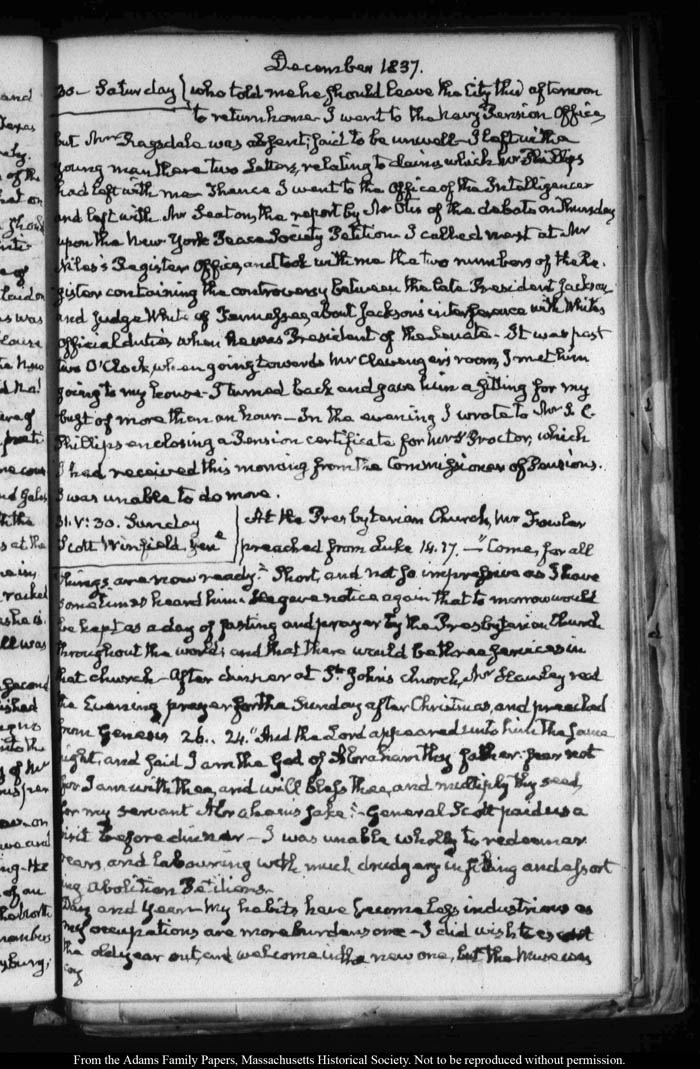 December 1837.
30. Saturday } who told me he should leave the City this afternoon
to return home. I went to the Navy Pension Office,
but Mr Ragsdale was absent; said to be unwell. I left with a
young man there two Letters, relating to claims which Mr Phillips
had left with me. Thence I went to the Office of the Intelligencer
and left with Mr Seaton, the report by Mr Otis of the debate on Thursday
upon the New York Peace Society Petition. I called next at Mr
Niles's Register Office, and took with me the two numbers of the Re-
gister containing the controversy between the late President Jackson
and Judge White of Tennessee, about Jackson's interference with White's
official duties when he was President of the Senate. It was past
two O'Clock, when going towards Mr Clevenger's room, I met him
going to my house. I turned back and gave him a sitting for my
bust of more than an hour. In the evening I wrote to Mr S. C.
Phillips enclosing a Pension certificate for Mrs Proctor, which
I had received this morning from the Commissioner of Pensions.
I was unable to do more.
31. V: 30. Sunday
Scott Winfield, Genl
At the Presbyterian Church, Mr Fowler
preached from Luke 14.17. — "Come, for all
things are now ready." Short, and not so impressive as I have
sometimes heard him. He gave notice again that to morrow would
be kept as a day of fasting and prayer by the Presbyterian Church
throughout the world; and that there would be three services in
that church. After dinner at St. John's church, Mr Hawley read
the Evening prayer for the Sunday after Christmas, and preached
from Genesis 26. 24. "And the Lord appeared unto him the same
night, and said I am the God of Abraham thy father: fear not
for I am with thee, and will bless thee, and multiply thy seed,
for my servant Abraham's sake." General Scott paid us a
visit before dinner — I was unable wholly to redeem ar-
rears and labouring with much drudgery in filing and assort
ing abolition Petitions.
Day and Year. My habits have become less industrious as
my occupations are more burdensome — I did wish to escort
the old year out, and welcome in the new one, but the Muse was
coy
From the Adams Family Papers, Massachusetts Historical Society. Not to be reproduced without permission.